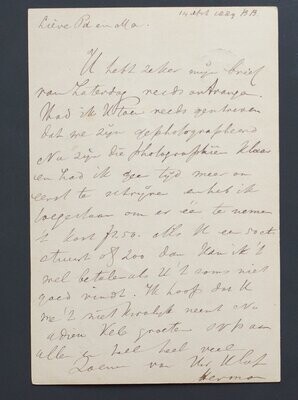 14 Oct 1889 B.B.
Lieve Pa en Ma.
U hebt zeker mijn brief
van Zaterdag reeds ontvangen
Had ik U toen reeds geschreven
dat we zijn gephotographeerd
Nu zijn die photographiën klaar
en had ik geen tijd meer om
eerst te schrijven en heb ik
toegestaan om er één te nemen
't kost f2.50. als U een
stuurt of 200 dan kan ik 't
wel betalen als U 't soms niet
goed vindt. Ik hoop dat U
me 't niet kwalijk neemt
adieu Vele groeten aan
allen en heel heel veel
Zoenen van Uw U liefh
Herman